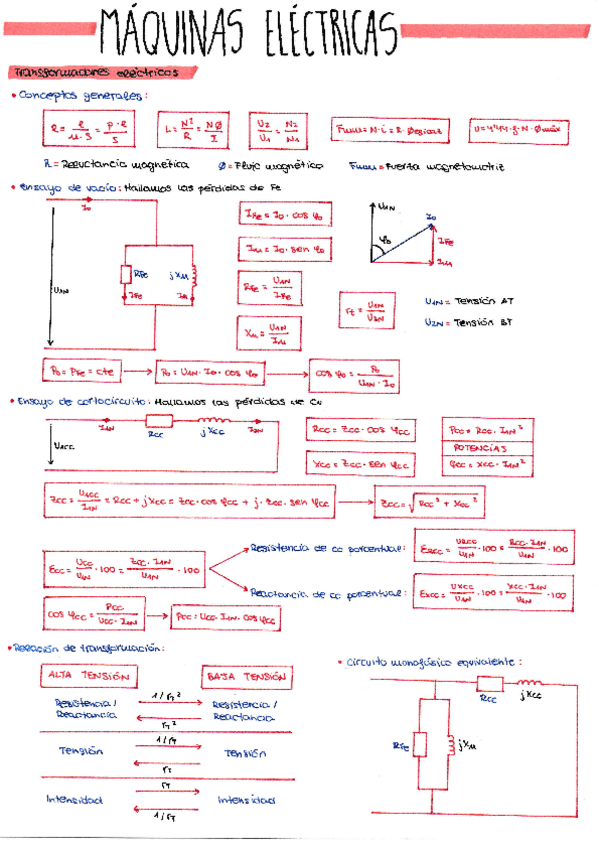 MÁQUINAS ELÉCTRICAS
Transformadores eléctricos
• Conceptos generales:
R = l / μ·S = ρ·l / S
L = N² / R = NØ / I
U₂ / U₁ = N₂ / N₁
U = 4'44·f·N·Ømáx
R = Reluctancia magnética Ø = Flujo magnético Fmm = Fuerza magnetomotriz
• Ensayo de vacío: Hallamos las pérdidas de Fe
I₀
U₁N
RFe
jXμ
IFe
Iμ
IFe = I₀ · cos φ₀
Iμ = I₀ · sen φ₀
RFe = U₁N / IFe
Xμ = U₁N / Iμ
U₁N
I₀
φ₀
IFe
Iμ
rt = U₁N / U₂N
U₁N = Tensión AT
U₂N = Tensión BT
P₀ = PFe = cte → P₀ = U₁N · I₀ · cos φ₀ → cos φ₀ = P₀ / U₁N · I₀
• Ensayo de cortocircuito: Hallamos las pérdidas de Cu
I₁N
Rcc
jXcc
I₂N
U₁cc
Rcc = Zcc · cos φcc
Xcc = Zcc · sen φcc
Pcc = Rcc · I₁N²
POTENCIAS
Qcc = Xcc · I₁N²
Zcc = U₁cc / I₁N = Rcc + jXcc = Zcc · cos φcc + j · Zcc · sen φcc → Zcc = √Rcc² + Xcc²
Ecc = Ucc / U₁N · 100 = Zcc · I₁N / U₁N · 100
Resistencia de cc porcentual: ERcc = URcc / U₁N · 100 = Rcc · I₁N / U₁N · 100
Reactancia de cc porcentual: EXcc = UXcc / U₁N · 100 = Xcc · I₁N / U₁N · 100
cos φcc = Pcc / Ucc · I₁N → Pcc = Ucc · I₁N · cos φcc
• Relación de transformación:
ALTA TENSIÓN
BAJA TENSIÓN
Resistencia / Reactancia
1/rT²
rT²
Resistencia / Reactancia
Tensión
1/rT
rT
Tensión
Intensidad
rT
1/rT
Intensidad
• Circuito monofásico equivalente:
Rcc
jXcc
RFe
jXμ